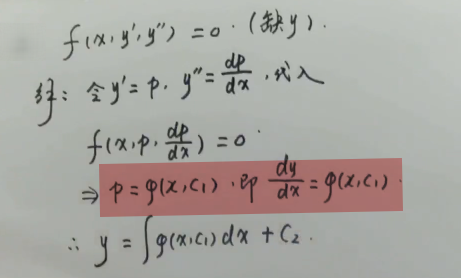 f(x, y', y'') = 0. (缺y).
解: 令 y' = p. y'' = dp/dx. 代入
f(x, p, dp/dx) = 0.
⇒ p = φ(x, C₁). 即 dy/dx = φ(x, C₁).
∴ y = ∫φ(x, C₁) dx + C₂.